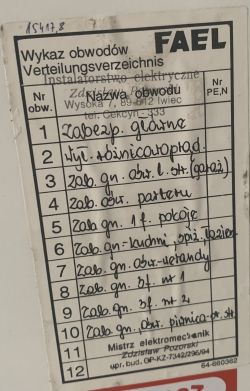 15417,8
Wykaz obwodów FAEL
Verteilungsverzeichnis
Instalatorstwo elektryczne
Nr obw. Nazwa obwodu Nr PE,N
Wysoka 7, 89-512 Iwiec
tel. Cekcyn 333
1 Zabezp. główne
2 Wył. różnicowoprąd.
3 zab. gn. obw. l. st. (garaż)
4 zab. obw. parteru
5 zab. gn. 1f. pokoje
6 zab. gn-kuchni, spiż, łazien
7 zab. gn. obw. werandy
8 zab. gn. 3f. nr 1
9 zab. gn. 3f. nr 2
10 zab. gn. obw. piwnica
11 Mistrz elektromechanik
Zdzisław Pozorski
12 upr. bud. GP-KZ-7342/296/94
64-660362